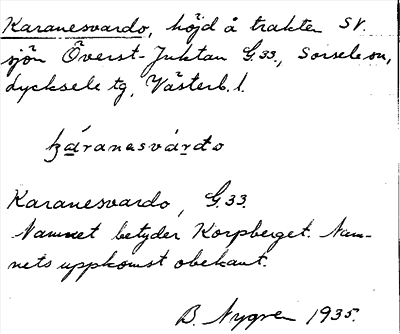 Karanesvardo, höjd å trakten SV.
sjön Överst-Juktan G.33., Sorsele sn,
Lycksele tg, Västerb. l.
káranasvárdo
Karanesvardo, G.33.
Namnet betyder Korpberget. Nam-
nets uppkomst obekant.
B. Nygren 1935.